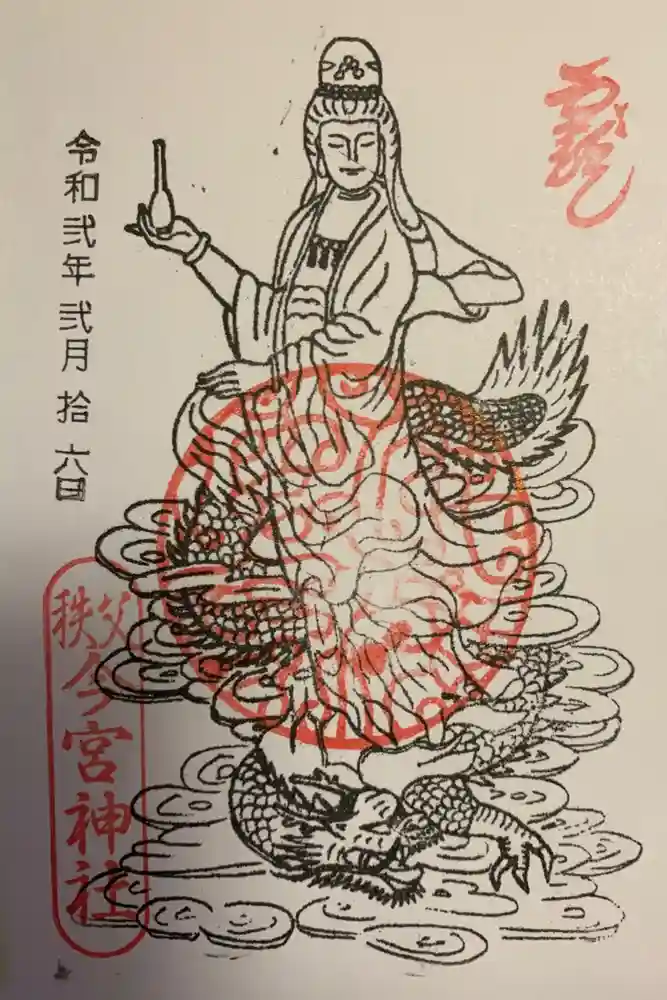 令和弐年弐月拾六日
秩父
今宮神社